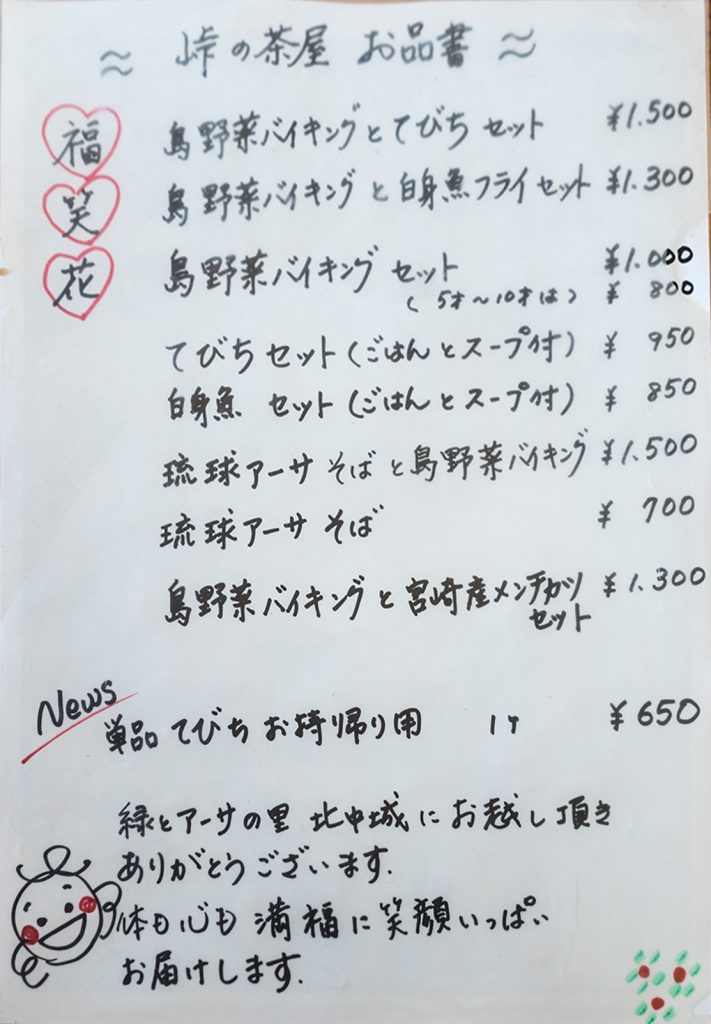 ≈ 峠の茶屋 お品書 ≈
福 島野菜バイキングとてびち セット ¥1.500
笑 島野菜バイキングと白身魚フライセット ¥1.300
花 島野菜バイキング セット ¥1.000
(5才~10才は) ¥ 800
てびちセット(ごはんとスープ付) ¥ 950
白身魚 セット(ごはんとスープ付) ¥ 850
琉球アーサ そばと島野菜バイキング ¥1.500
琉球アーサ そば ¥ 700
島野菜バイキングと宮崎産メンチカツ ¥1.300
セット
News
単品 てびち お持帰り用 1ケ ¥650
緑とアーサの里 北中城にお越し頂き
ありがとうございます.
体も心も 満福に笑顔いっぱい
お届けします.